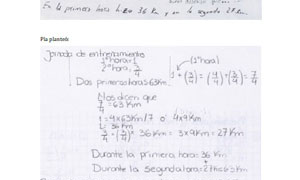 En la primera hora hizo 36 Km y en la segunda 27 Km.
Pla plantejt:
Jornada de entrenamiento
1ª hora: 1
2ª hora: 3/4
Dos primeras horas: 63 Km.
(1ª hora)
1 + (3/4) = (4/4 + 3/4) = 7/4
Nos dicen que
7/4 = 63 Km
1 = 4x63 Km/7 o 4x9 Km
1 = 36 Km
3/4 = (3/4) x 36 Km = 3 x 9 Km = 27 Km
Durante la primera hora = 36 Km
Durante la segunda hora = 27 Km